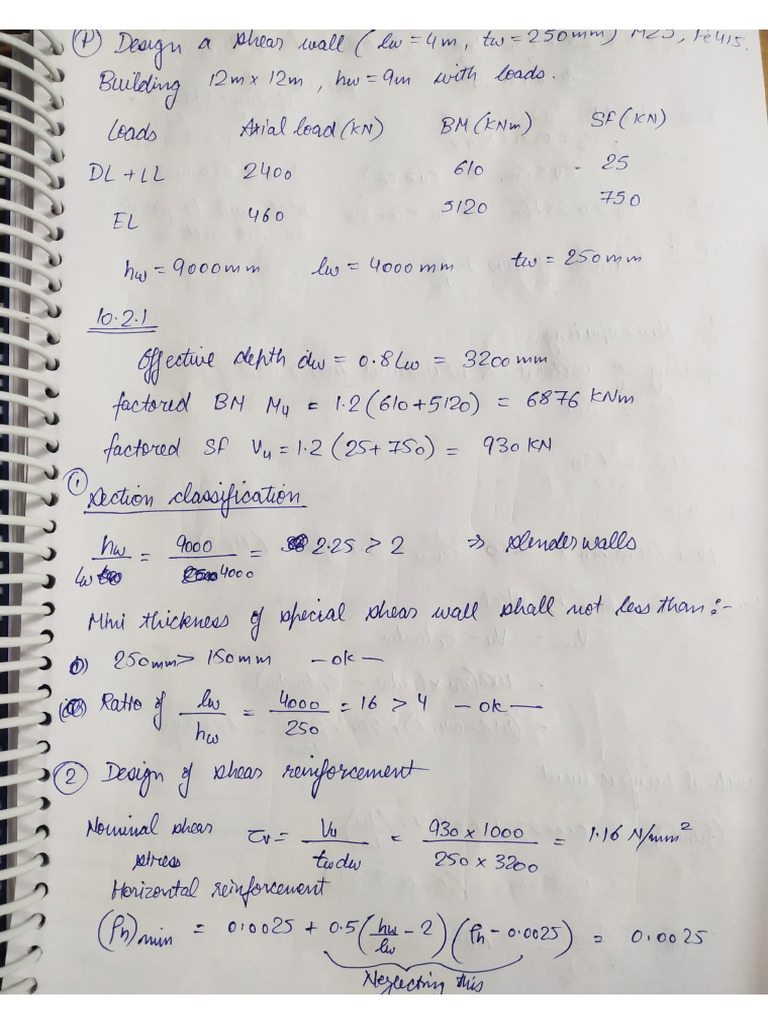 (P) Design a shear wall (lw = 4m, tw = 250mm) M25, Fe415.
Building 12m x 12m, hw = 9m with loads.
Loads Axial load (KN) BM (KNm) SF (KN)
DL + LL 2400 610 25
EL 460 5120 750
hw = 9000mm lw = 4000mm tw = 250mm
10.2.1
Effective depth dw = 0.8lw = 3200mm
factored BM Mu = 1.2 (610+5120) = 6876 KNm
factored SF Vu = 1.2 (25+750) = 930 KN
① section classification
hw/lw = 9000/4000 = 2.25 > 2 ⇒ slender walls
Mini thickness of special shear wall shall not less than :-
① 250mm > 150mm - ok -
Ratio of lw/hw = 4000/250 = 16 > 4 - ok -
② Design of shear reinforcement
Nominal shear stress τv = Vu/(tw dw) = (930 x 1000)/(250 x 3200) = 1.16 N/mm²
Horizontal reinforcement
(ρh)min = 0.0025 + 0.5 (hw/lw - 2) (ρh - 0.0025) = 0.0025
Neglecting this